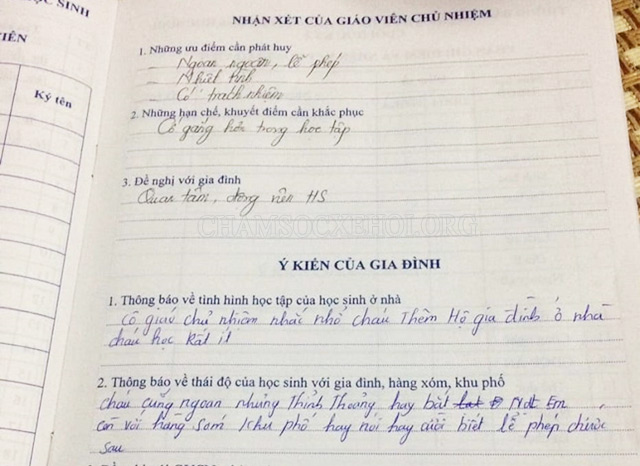 ỌC SINH
IÊN
Ký tên
NHẬN XÉT CỦA GIÁO VIÊN CHỦ NHIỆM
1. Những ưu điểm cần phát huy
_ Ngoan ngoãn, lễ phép
_ Nhiệt tình
_ Có trách nhiệm
2. Những hạn chế, khuyết điểm cần khắc phục
Cố gắng hơn trong học tập
3. Đề nghị với gia đình
Quan tâm, động viên HS
CHAMSOCXEHOI.ORG
Ý KIẾN CỦA GIA ĐÌNH
1. Thông báo về tình hình học tập của học sinh ở nhà
Cô giáo chủ nhiệm nhắc nhở cháu Thêm Hộ gia đình ở nhà
cháu học Rất ít
2. Thông báo về thái độ của học sinh với gia đình, hàng xóm, khu phố
cháu cũng ngoan nhưng Thỉnh Thoảng hay bắt Nạt Em
còn với hàng sóm khu phố hay nói hay cười biết lễ phép chước
sau